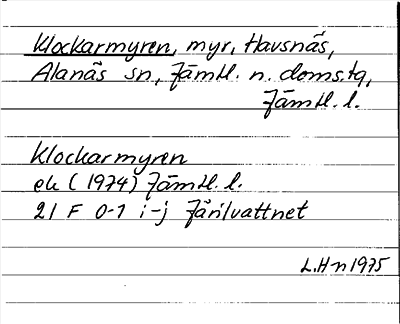 Klockarmyren, myr, Havsnäs,
Alanäs sn, Jämtl. n. doms.tg,
Jämtl. l.
Klockarmyren
ek (1974) Jämtl. l.
21 F 0-1 i-j Järilvattnet
L.Hn 1975